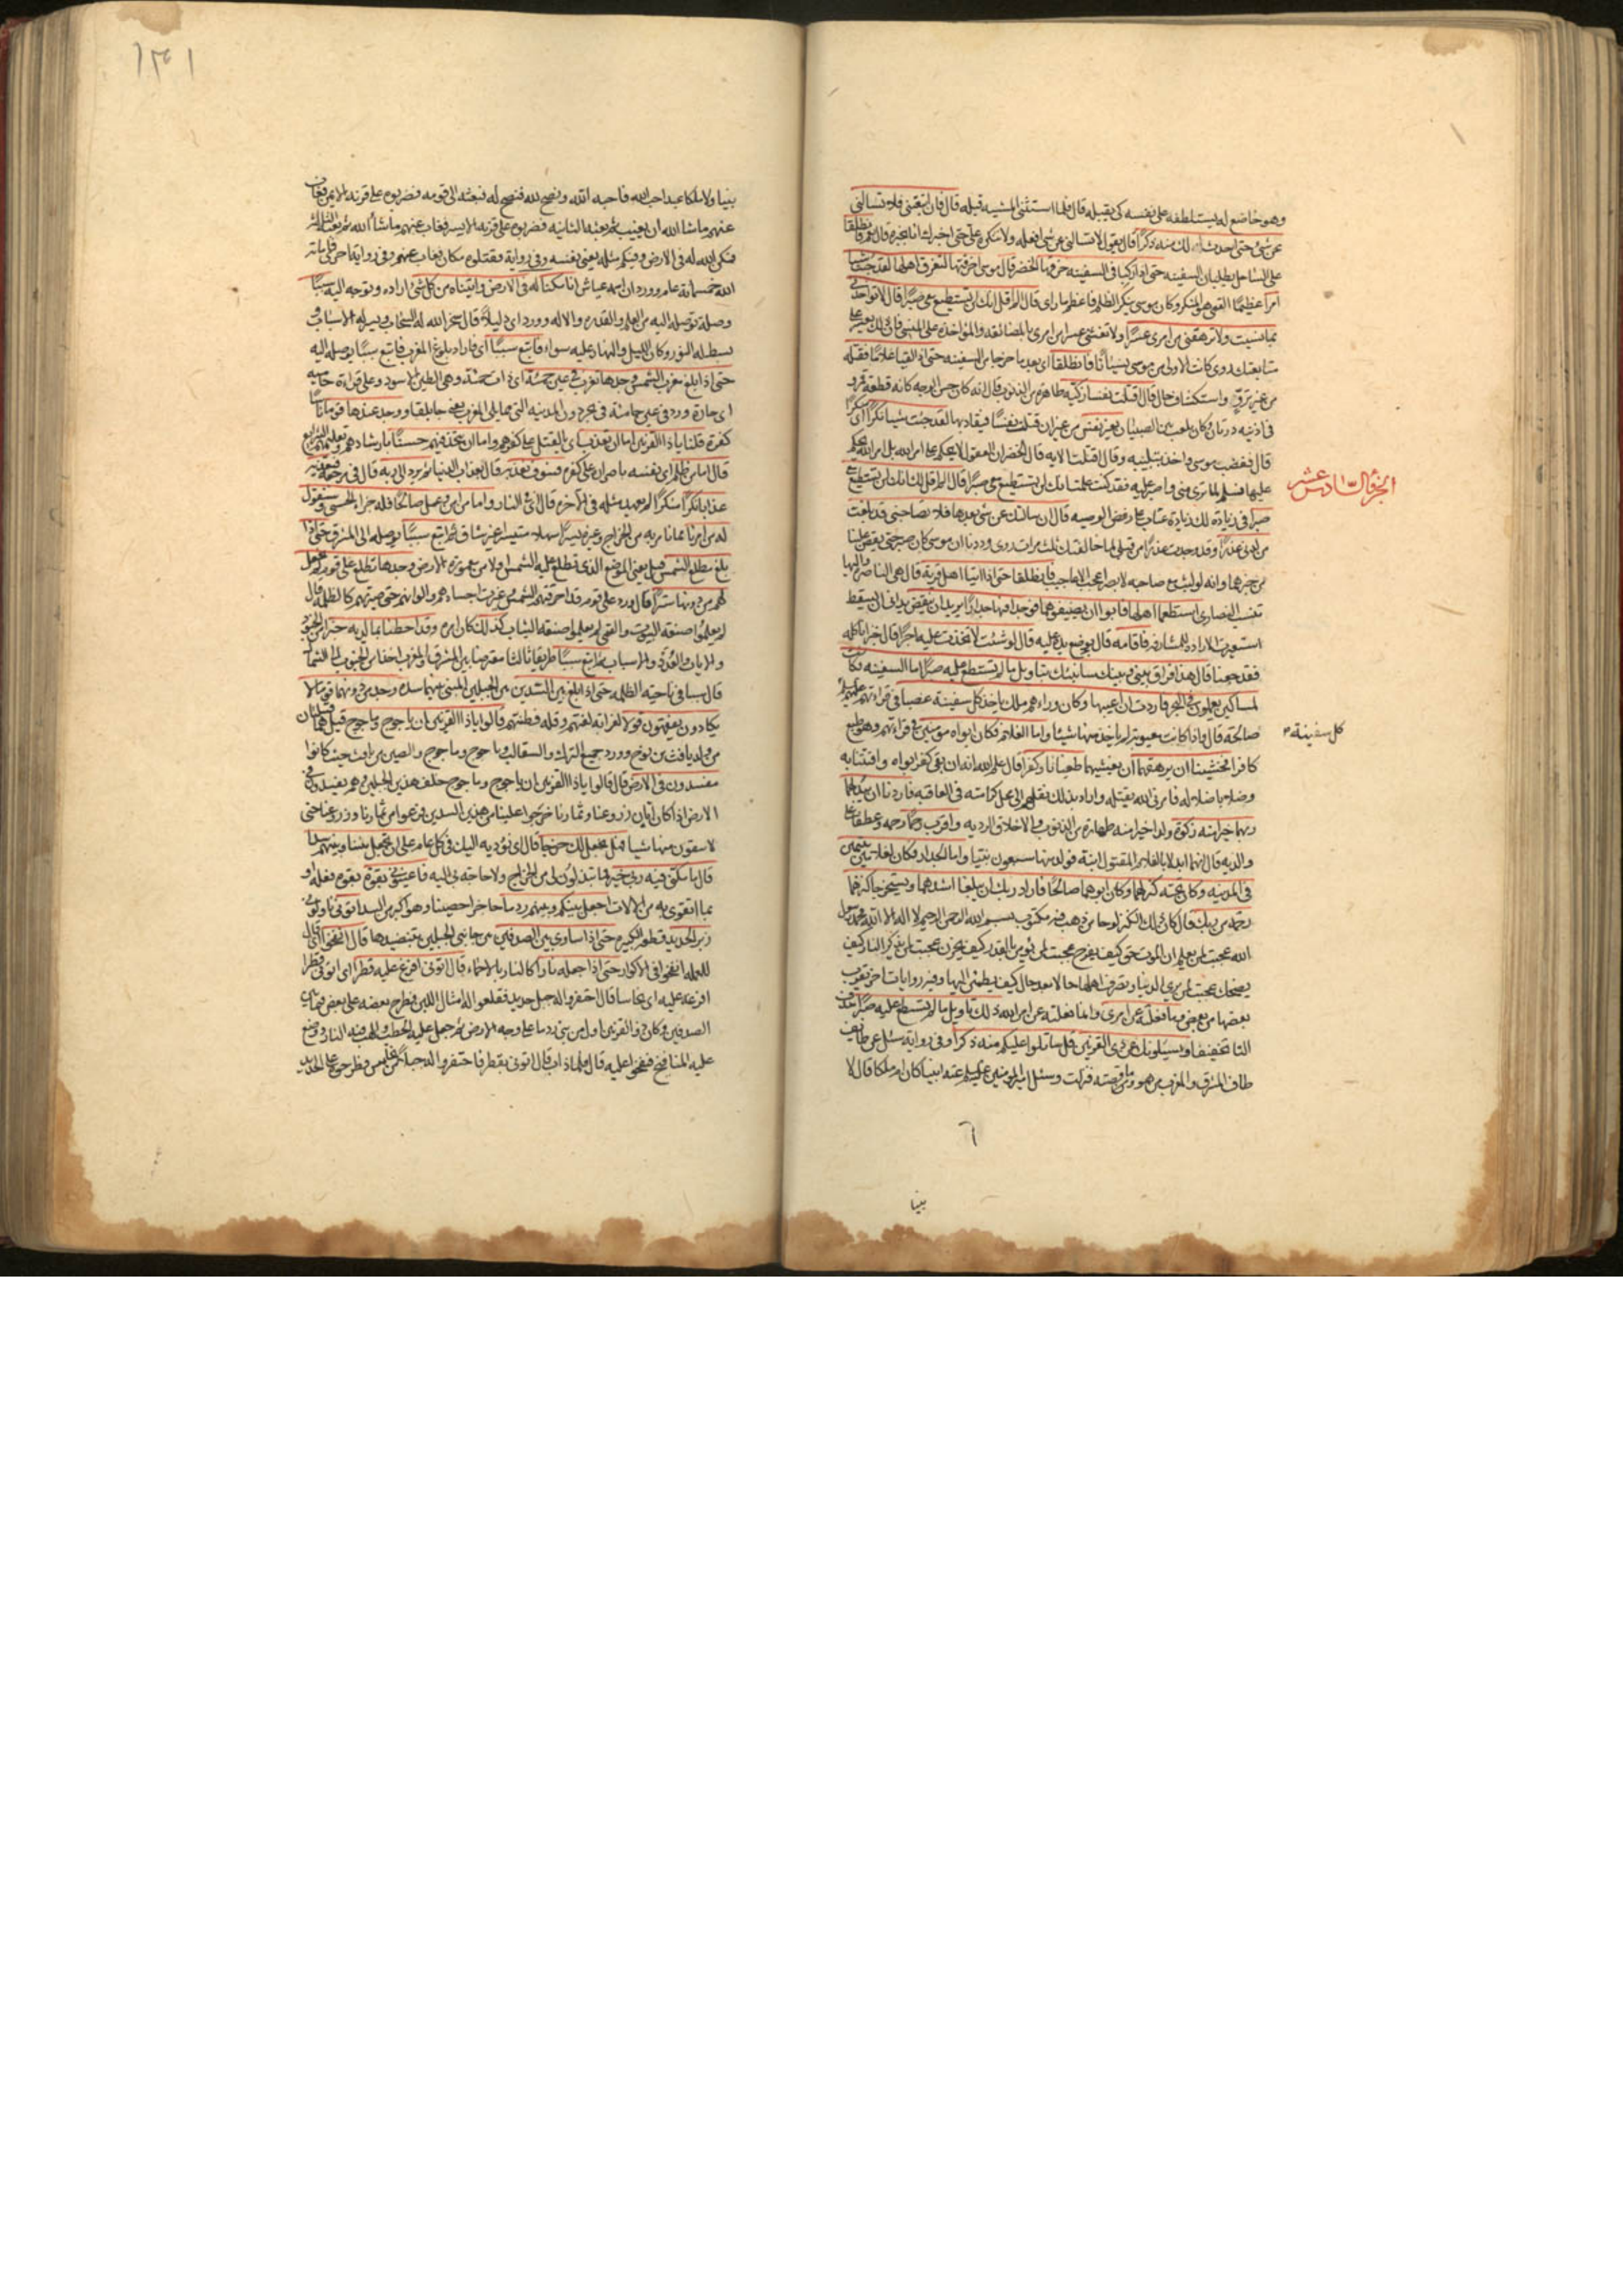 وهو خاضع له يستلطفه على نفسه كي يقبله قال فلما استثنى المشية قبله قال فان اتبعتني فلا تسالني
عن شئ حتى احدث لك منه ذكرا قال يقول لا تسالني عن شئ افعله ولا تنكره علي حتى اخبرك انا بخبره قال نعم فانطلقا
على الساحل يطلبان السفينه حتى اذا ركبا في السفينه خرقها الخضر قال موسى اخرقتها لتغرق اهلها لقد جئت شيئا
امرا عظيما القمي هو المنكر وكان موسى ينكر الظلم فاعظم ما راى قال الم اقل انك لن تستطيع معي صبرا قال لا تواخذني
بما نسيت ولا ترهقني من امري عسرا ولا تغشني عسرا من امري بالمضائقه والمؤاخذه على المنسي فان ذلك يعسر علي
متابعتك روى كانت الاولى من موسى نسيانا فانطلقا اي بعد ما خرجا من السفينه حتى اذا لقيا غلاما فقتله
من غير ترو واستكشاف حال قال اقتلت نفسا زكيه طاهرة من الذنوب قال انه كان حسن الوجه كانه قطعة قمر
في اذنيه درتان وكان يلعب بين الصبيان بغير نفس من غير ان قتلت نفسا فيقاد بها لقد جئت شيئا نكرا اي منكرا
قال فغضب موسى واخذ بتلبيبه وقال اقتلت الايه قال الخضر ان العقول لا يحكم على امر الله بل امر الله يحكم
عليها فسلم لما ترى مني واصبر عليه فقد كنت علمت انك لن تستطيع معي صبرا قال الم اقل لك انك لن تستطيع معي
صبرا في زيادة لك زيادة عتاب على رفض الوصيه قال ان سالتك عن شئ بعدها فلا تصاحبني قد بلغت
من لدني عذرا وقد وجدت عذرا من قبلي لما خالفتك ثلث مرات روى وددنا ان موسى كان صبر حتى يقص علينا
من خبرهما وانه لو لبث مع صاحبه لابصر اعجب الاعاجيب فانطلقا حتى اذا اتيا اهل قرية قال هي الناصرة واليها
تنسب النصارى استطعما اهلها فابوا ان يضيفوهما فوجدا فيها جدارا يريد ان ينقض يداني ان يسقط
استعيرت الارادة للمشارفه فاقامه قال بوضع يده عليه قال لو شئت لاتخذت عليه اجرا قال خبزا ناكله
فقد جعنا قال هذا فراق بيني وبينك سانبئك بتاويل ما لم تستطع عليه صبرا اما السفينه فكانت
لمساكين يعملون في البحر فاردت ان اعيبها وكان وراءهم ملك ياخذ كل سفينة غصبا في قراءتهم عليهم السلام
صالحة قال واذا كانت معيوبة لم ياخذ منها شيئا واما الغلام فكان ابواه مؤمنين في قراءتهم وهو طبع
كافرا فخشينا ان يرهقهما ان يغشيهما طغيانا وكفرا قال علم الله انه ان بقي كفر ابواه وافتتنا به
وضلا باضلاله فامرني الله بقتله واراد بذلك نقلهم الى محل كرامته في العاقبه فاردنا ان يبدلهما
ربهما خيرا منه زكوة ولدا خيرا منه طهارة من الذنوب والاخلاق الرديه واقرب رحما رحمه وعطفا على
والديه قال انهما ابدلا بالغلام المقتول ابنة فولد منها سبعون نبيا واما الجدار فكان لغلامين يتيمين
في المدينه وكان تحته كنز لهما وكان ابوهما صالحا فاراد ربك ان يبلغا اشدهما ويستخرجا كنزهما
رحمة من ربك قال كان ذلك الكنز لوحا من ذهب فيه مكتوب بسم الله الرحمن الرحيم لا اله الا الله محمد رسول
الله عجبت لمن يعلم ان الموت حق كيف يفرح عجبت لمن يؤمن بالقدر كيف يحزن عجبت لمن يذكر النار كيف
يضحك عجبت لمن يرى الدنيا وتصرف اهلها حالا بعد حال كيف يطمئن اليها وفيه روايات اخر يقرب
بعضها من بعض وما فعلته عن امري وانما فعلته عن امر الله ذلك تاويل ما لم تسطع عليه صبرا حذف
التا تخفيفا ويسئلونك عن ذي القرنين قل ساتلوا عليكم منه ذكرا وفي رواية سئل عن طايف
طاف المشرق والمغرب من هو وما قصته فنزلت وسئل امير المؤمنين عليه السلم عنه انبيا كان ام ملكا قال لا
الجزء السادس عشر
كل سفينة
٦
نبيا
١٣١
نبيا ولا ملكا عبدا احب الله فاحبه الله ونصح لله فنصح له فبعثه الى قومه فضربوه على قرنه الايمن فغاب
عنهم ما شا الله ان يغيب ثم بعثه الثانيه فضربوه على قرنه الايسر فغاب عنهم ما شا الله ثم بعثه الثالثه
فمكن الله له في الارض وفيكم مثله يعني نفسه وفي رواية فقتلوه مكان فغاب عنهم وفي رواية اخرى فاماته
الله خمسمائة عام وورد ان اسمه عياش انا مكنا له في الارض واتيناه من كل شئ اراده وتوجه اليه سببا
وصلة توصله اليه من العلم والقدره والاله وورد اي دليلا وقال سخر الله له السحاب ويسر له الاسباب و
بسط له النور وكان الليل والنهار عليه سواء فاتبع سببا اي فاراد بلوغ المغرب فاتبع سببا يوصله اليه
حتى اذا بلغ مغرب الشمس وجدها تغرب في عين حمئة اي ذات حمئة وهي الطين الاسود وعلى قراءة حاميه
اي حارة ورد في عين حامئة في بحر دون المدينه التي مما يلي المغرب يعني جابلقا ووجد عندها قوما ناسا
كفرة قلنا يا ذا القرنين اما ان تعذب اي بالقتل على كفرهم واما ان تتخذ فيهم حسنا بارشادهم وتعليمهم الشرايع
قال اما من ظلم اي نفسه باصراره على كفره فسوف نعذبه قال بعذاب الدنيا ثم يرد الى ربه قال في مرجعه فيعذبه
عذابا نكرا منكرا لم يعهد مثله في الاخره قال في النار واما من امن وعمل صالحا فله جزاء الحسنى وسنقول
له من امرنا مما نامر به من الخراج وغيره يسرا سهلا متيسرا غير شاق ثم اتبع سببا يوصله الى المشرق حتى اذا
بلغ مطلع الشمس قيل يعني الموضع الذي تطلع عليه الشمس اولا من معمورة الارض وجدها تطلع على قوم لم نجعل
لهم من دونها سترا قال ورد على قوم قد احرقتهم الشمس وغيرت اجسادهم والوانهم حتى صيرتهم كالظلمه قال
لم يعلموا صنعة البيوت والقمي لم يعلموا صنعه الثياب كذلك كان امره وقد احطنا بما لديه خبرا من الجنود
والايات والعدد والاسباب ثم اتبع سببا طريقا ثالثا معترضا بين المشرق والمغرب اخذا من الجنوب الى الشمال
قال سببا في ناحية الظلمه حتى اذا بلغ بين السدين بين الجبلين المبني بينهما سده وجد من دونهما قوما لا
يكادون يفقهون قولا لغرابة لغتهم وقلة فطنتهم قالوا يا ذا القرنين ان ياجوج وماجوج قيل هما قبيلتان
من ولد يافث بن نوح وورد جميع الترك والسقالب وياجوج وماجوج والصين من يافث حيث كانوا
مفسدون في الارض قال قالوا يا ذا القرنين ان ياجوج وماجوج خلف هذين الجبلين وهم يفسدون في
الارض اذا كان ابان زروعنا وثمارنا خرجوا علينا من هذين السدين فرعوا من ثمارنا وزروعنا حتى
لا يبقون منها شيئا فهل نجعل لك خرجا قال اي نؤديه اليك في كل عام على ان تجعل بيننا وبينهم سدا
قال ما مكني فيه ربي خير مما تبذلون لي من الخراج ولا حاجه بي اليه فاعينوني بقوة بقوم فعله او
بما اتقوى به من الالات اجعل بينكم وبينهم ردما حاجزا حصينا وهو اكبر من السد اتوني ناولوني
زبر الحديد قطعه الكبيره حتى اذا ساوى بين الصدفين بين جانبي الجبلين بتنضيدها قال انفخوا اي قال
للعمله انفخوا في الاكوار حتى اذا جعله نارا كالنار بالاحماء قال اتوني افرغ عليه قطرا اي اتوني قطرا
افرغه عليه اي نحاسا قال احتفروا له جبل حديد فقلعوا له امثال اللبن فطرح بعضه على بعض فيما بين
الصدفين وكان ذو القرنين اول من بنى ردما على وجه الارض ثم جعل عليه الحطب والهب فيه النار ووضع
عليه المنافيخ فنفخوا عليه قال فلما ذاب قال اتوني بقطر فاحتفروا له جبلا من نحاس فطرحوه على الحديد